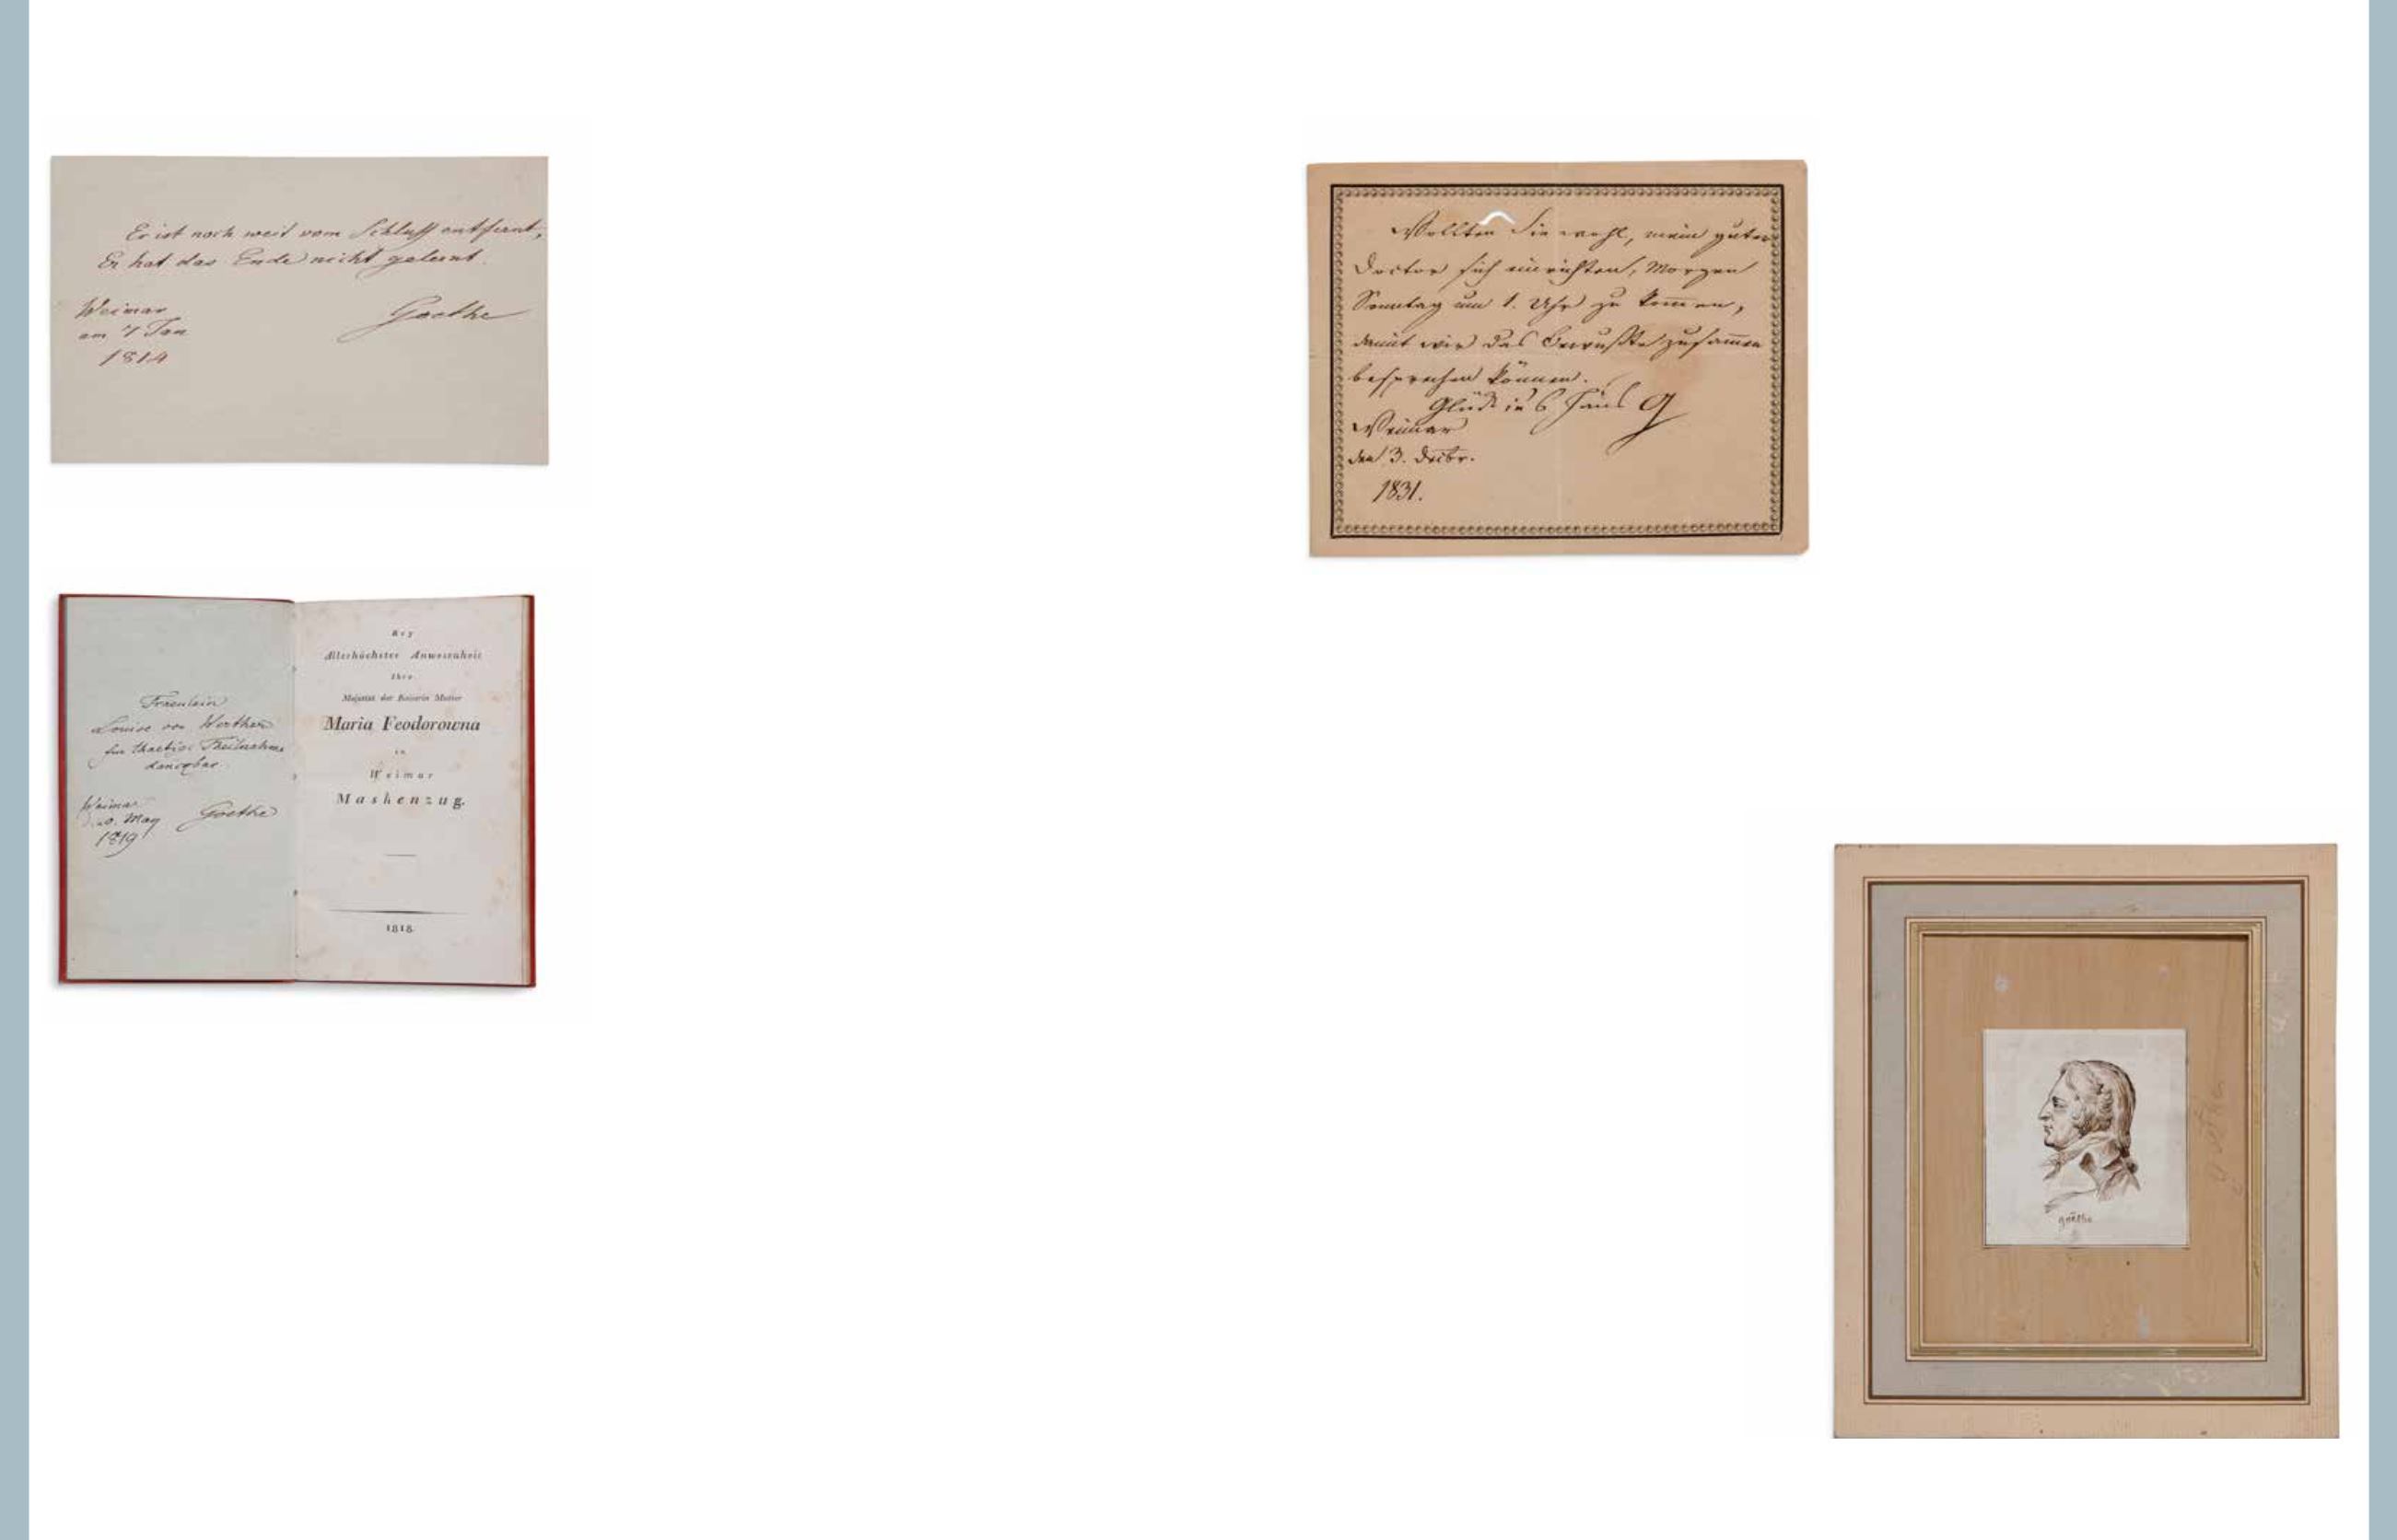 Er ist noch weit vom Schluss entfernt,
Er hat das Ende nicht gelernt.
Weimar
am 7 Jan
1814
Goethe
Fraeulein
Louise von Werthern
für thaetige Theilnahme
danckbar
Weimar
d. 20. May
1819
Goethe
Bey
Allerhöchster Anwesenheit
Ihro
Majestät der Kaiserin Mutter
Maria Feodorowna
in
Weimar
Maskenzug.
1818
Wollten Sie wohl, mein guter
Doctor sich einrichten, Morgen
Sonntag um 1. Uhr zu kommen,
damit wir das Bewußte zusammen
besprechen können.
Glück in's Haus G
Weimar
den 3. Decbr.
1831.
goethe